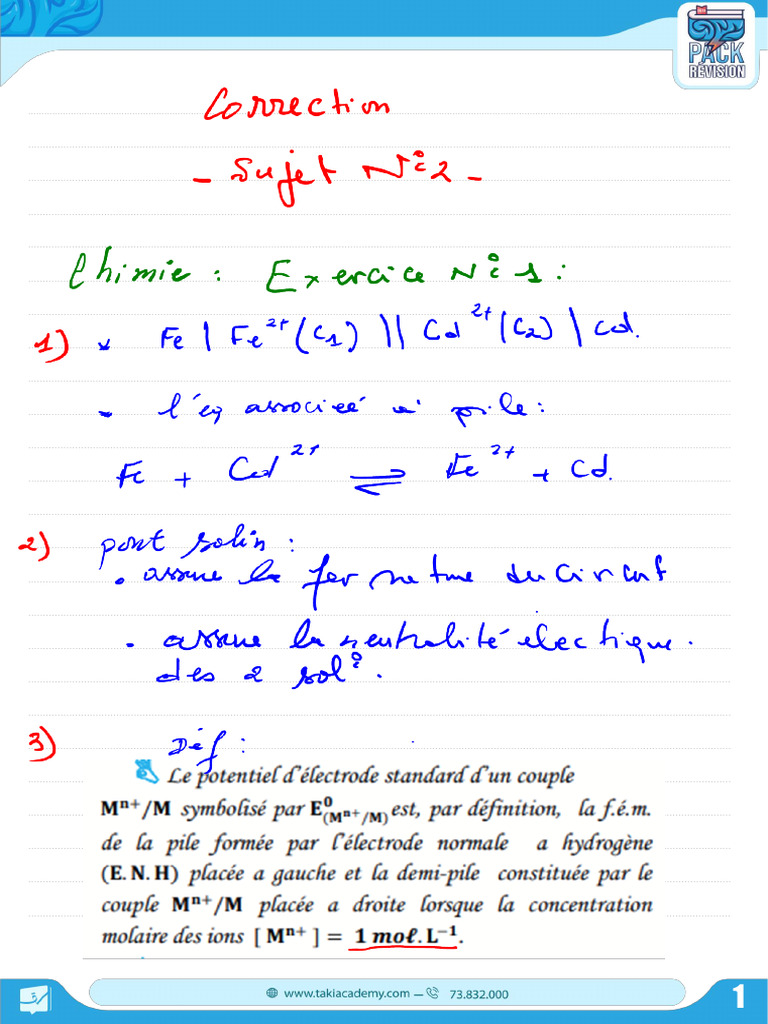 PACK
RÉVISION
Correction
- Sujet N° 2 -
Chimie : Exercice N° 1 :
1) * Fe | Fe²⁺(C₁) || Cd²⁺(C₂) | Cd.
- l'éq associée à pile :
Fe + Cd²⁺ ⇌ Fe²⁺ + Cd.
2) pont salin :
• assure la fermeture du circuit
• assure la neutralité électrique.
des 2 sol°.
3) Déf :
Le potentiel d'électrode standard d'un couple
Mⁿ⁺/M symbolisé par E⁰(Mⁿ⁺/M) est, par définition, la f.é.m.
de la pile formée par l'électrode normale a hydrogène
(E.N.H) placée a gauche et la demi-pile constituée par le
couple Mⁿ⁺/M placée a droite lorsque la concentration
molaire des ions [ Mⁿ⁺ ] = 1 moℓ.L⁻¹.
www.takiacademy.com — 73.832.000
1